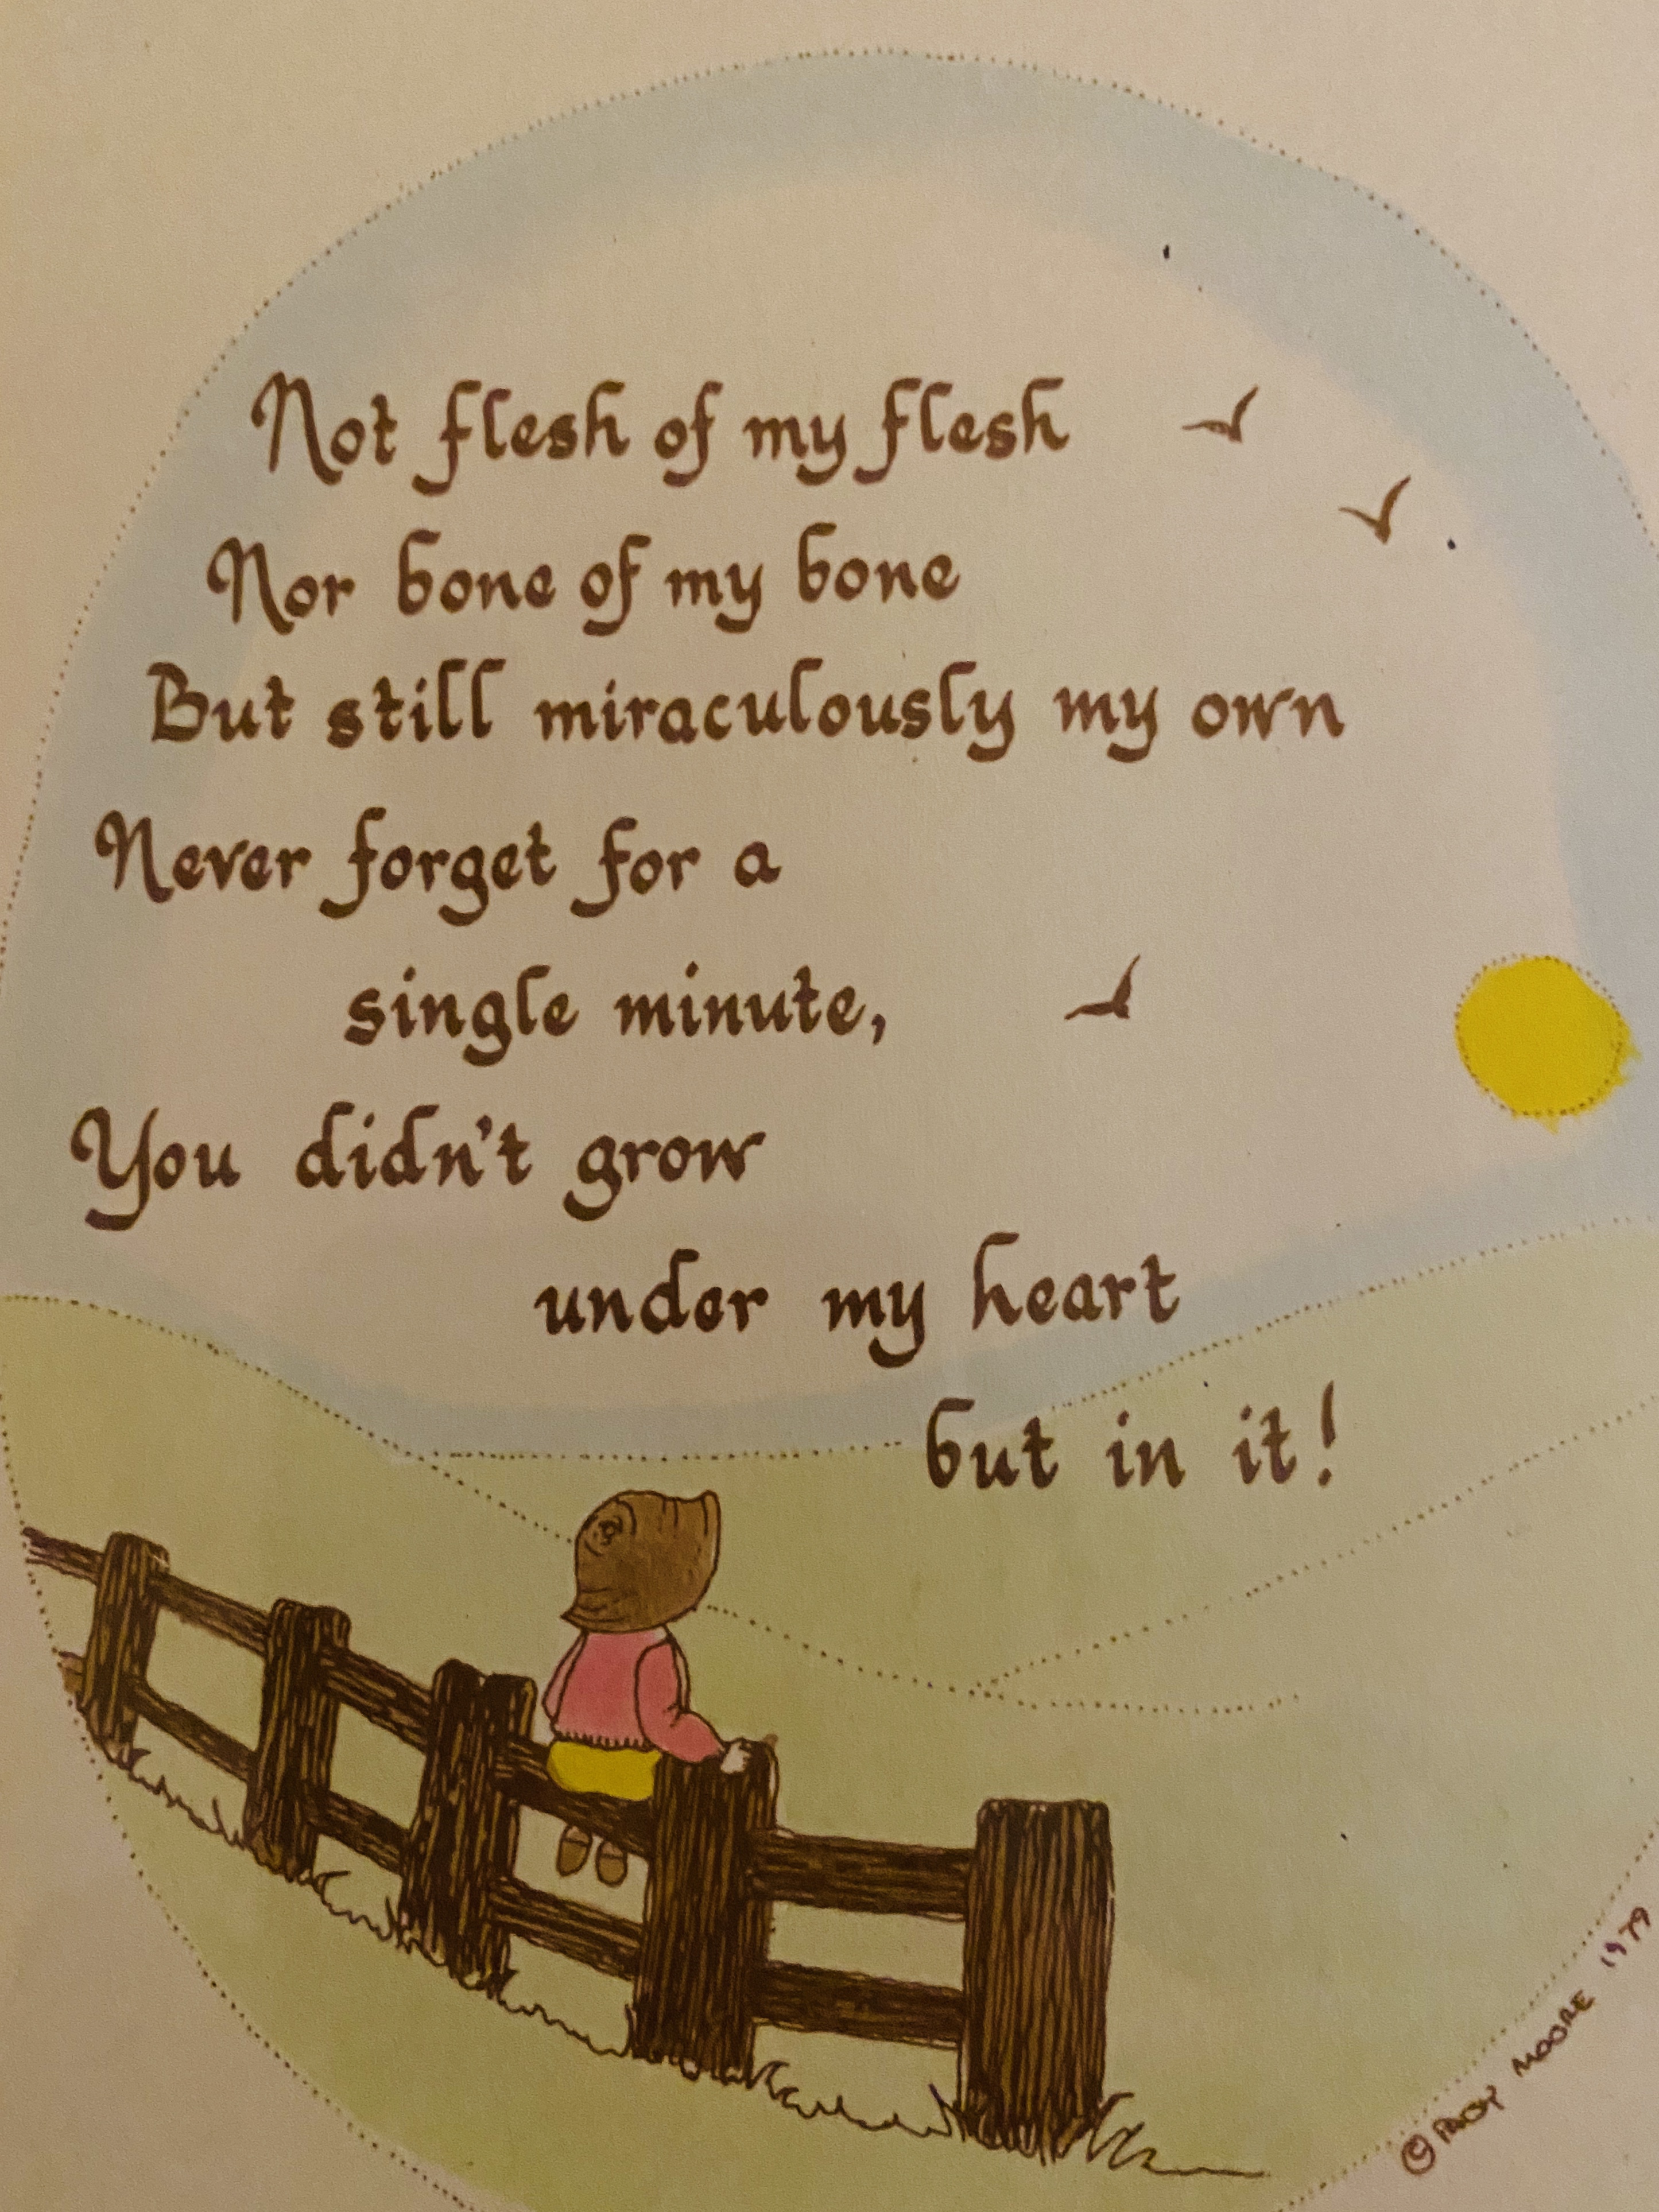 Not flesh of my flesh
Nor bone of my bone
But still miraculously my own
Never forget for a
single minute,
You didn't grow
under my heart
but in it!
© MOORE 1979